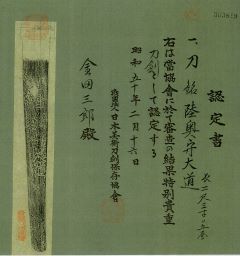 認定書
一、刀 銘 陸奥守大道
長二尺三寸
右は當協會に於て審査の結果特別貴重
刀劍として認定する
昭和五十年二月十六日
財團法人日本美術刀劍保存協會
金田三郎殿